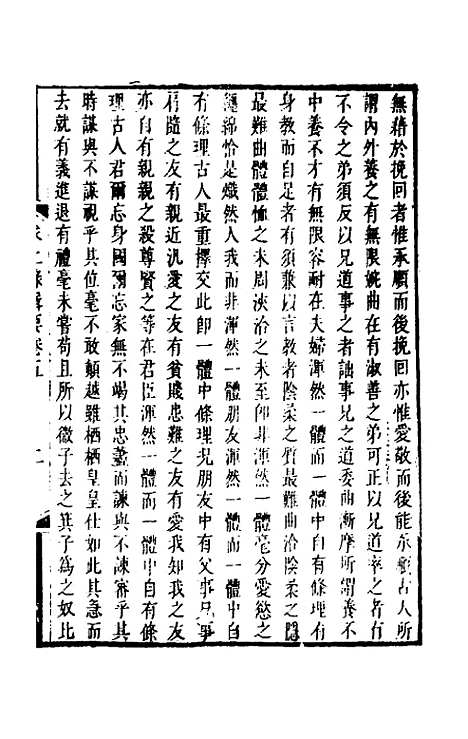 無藉於挽回者惟承順而後挽回亦惟愛敬而後能承順古人所
謂內外養之有無限婉曲在有淑善之弟可正以兄道率之者有
不令之弟須反以兄道事之者詘事兄之道委曲漸摩所謂養不
中養不才有無限容耐在夫婦渾然一體而一體中自有條理有
身教而自足者有須兼以言教者陰柔之質最難曲洽陰柔之隱
最難曲體體恤之未周浹洽之未至卽非渾然一體毫分愛慾之
纏綿恰是熾然人我而非渾然一體朋友渾然一體而一體中自
有條理古人最重擇交此卽一體中條理見朋友中有父事兄事
肩隨之友有親近汎愛之友有貧賤患難之友有愛我知我之友
亦自有親親之殺尊賢之等在君臣渾然一體而一體中自有條
理古人君爾忘身國爾忘家無不竭其忠藎而諫與不諫審乎其
時謀與不謀視乎其位毫不敢顛越雖栖栖皇皇仕如此其急而
去就有義進退有禮毫未嘗苟且所以微子去之箕子爲之奴比